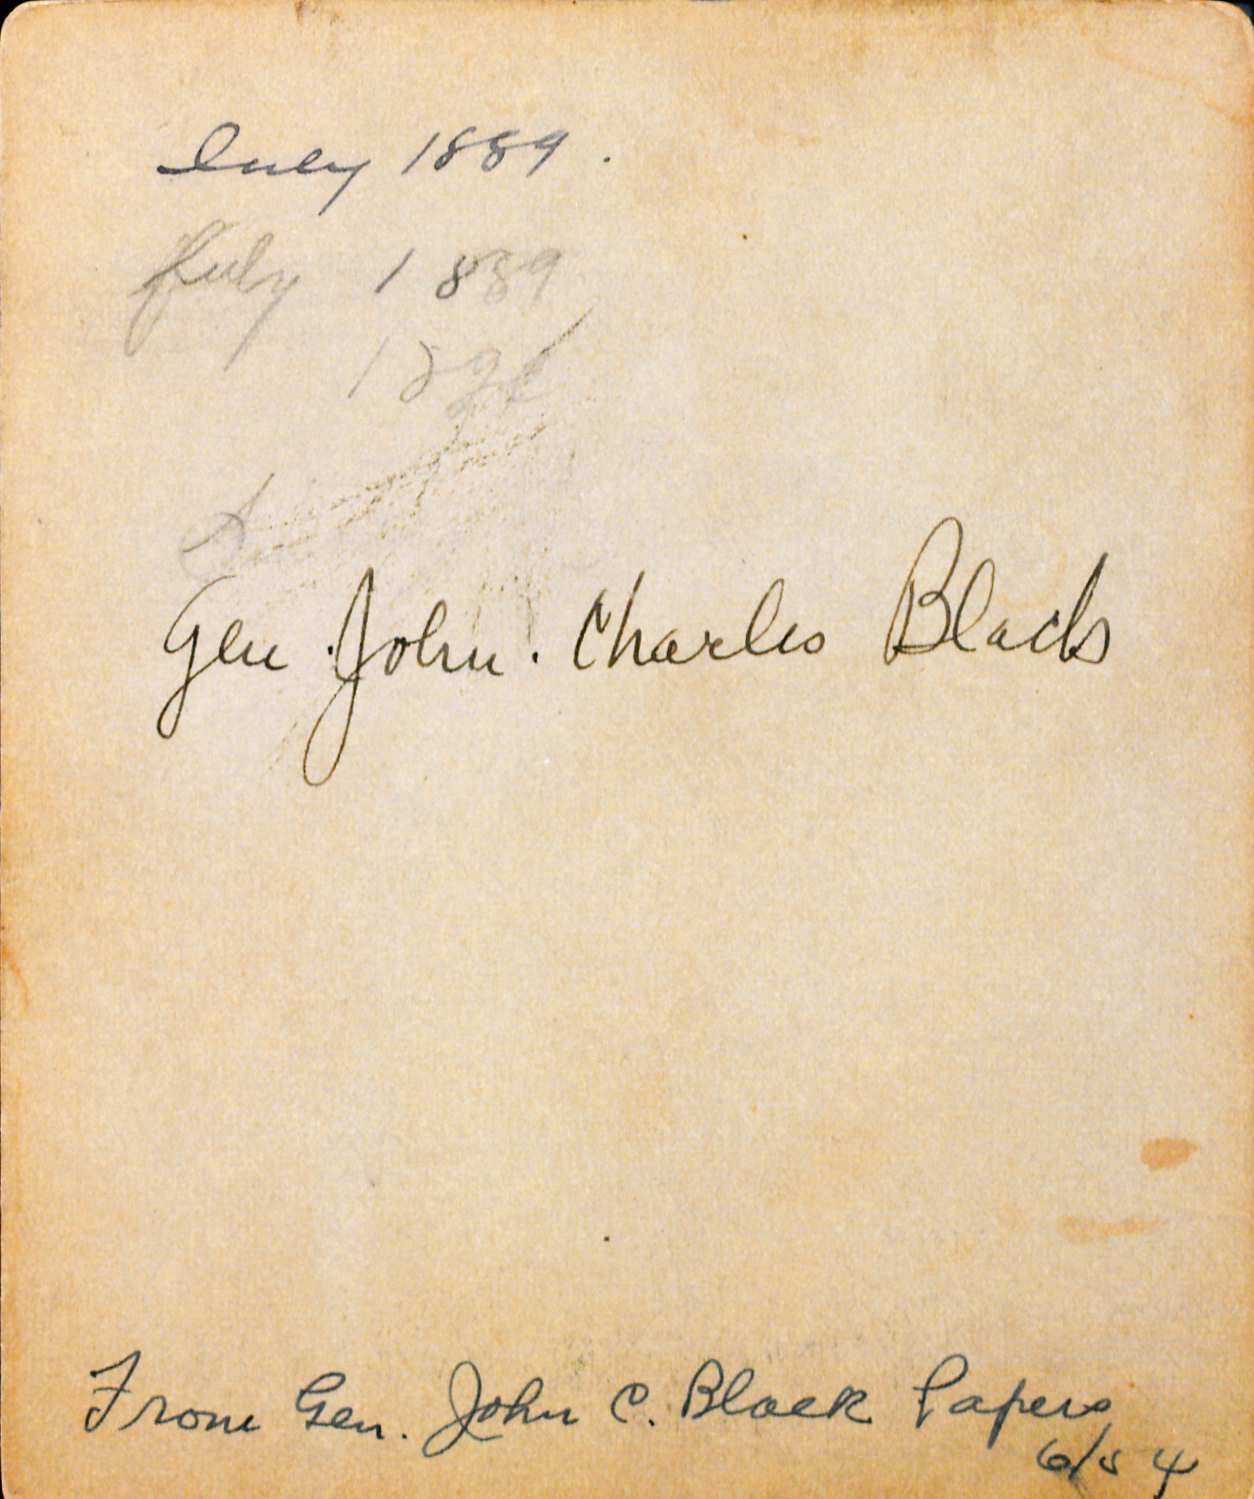 July 1889.
July 1889
Gen. John. Charles Black
From Gen. John C. Black Papers
6/54